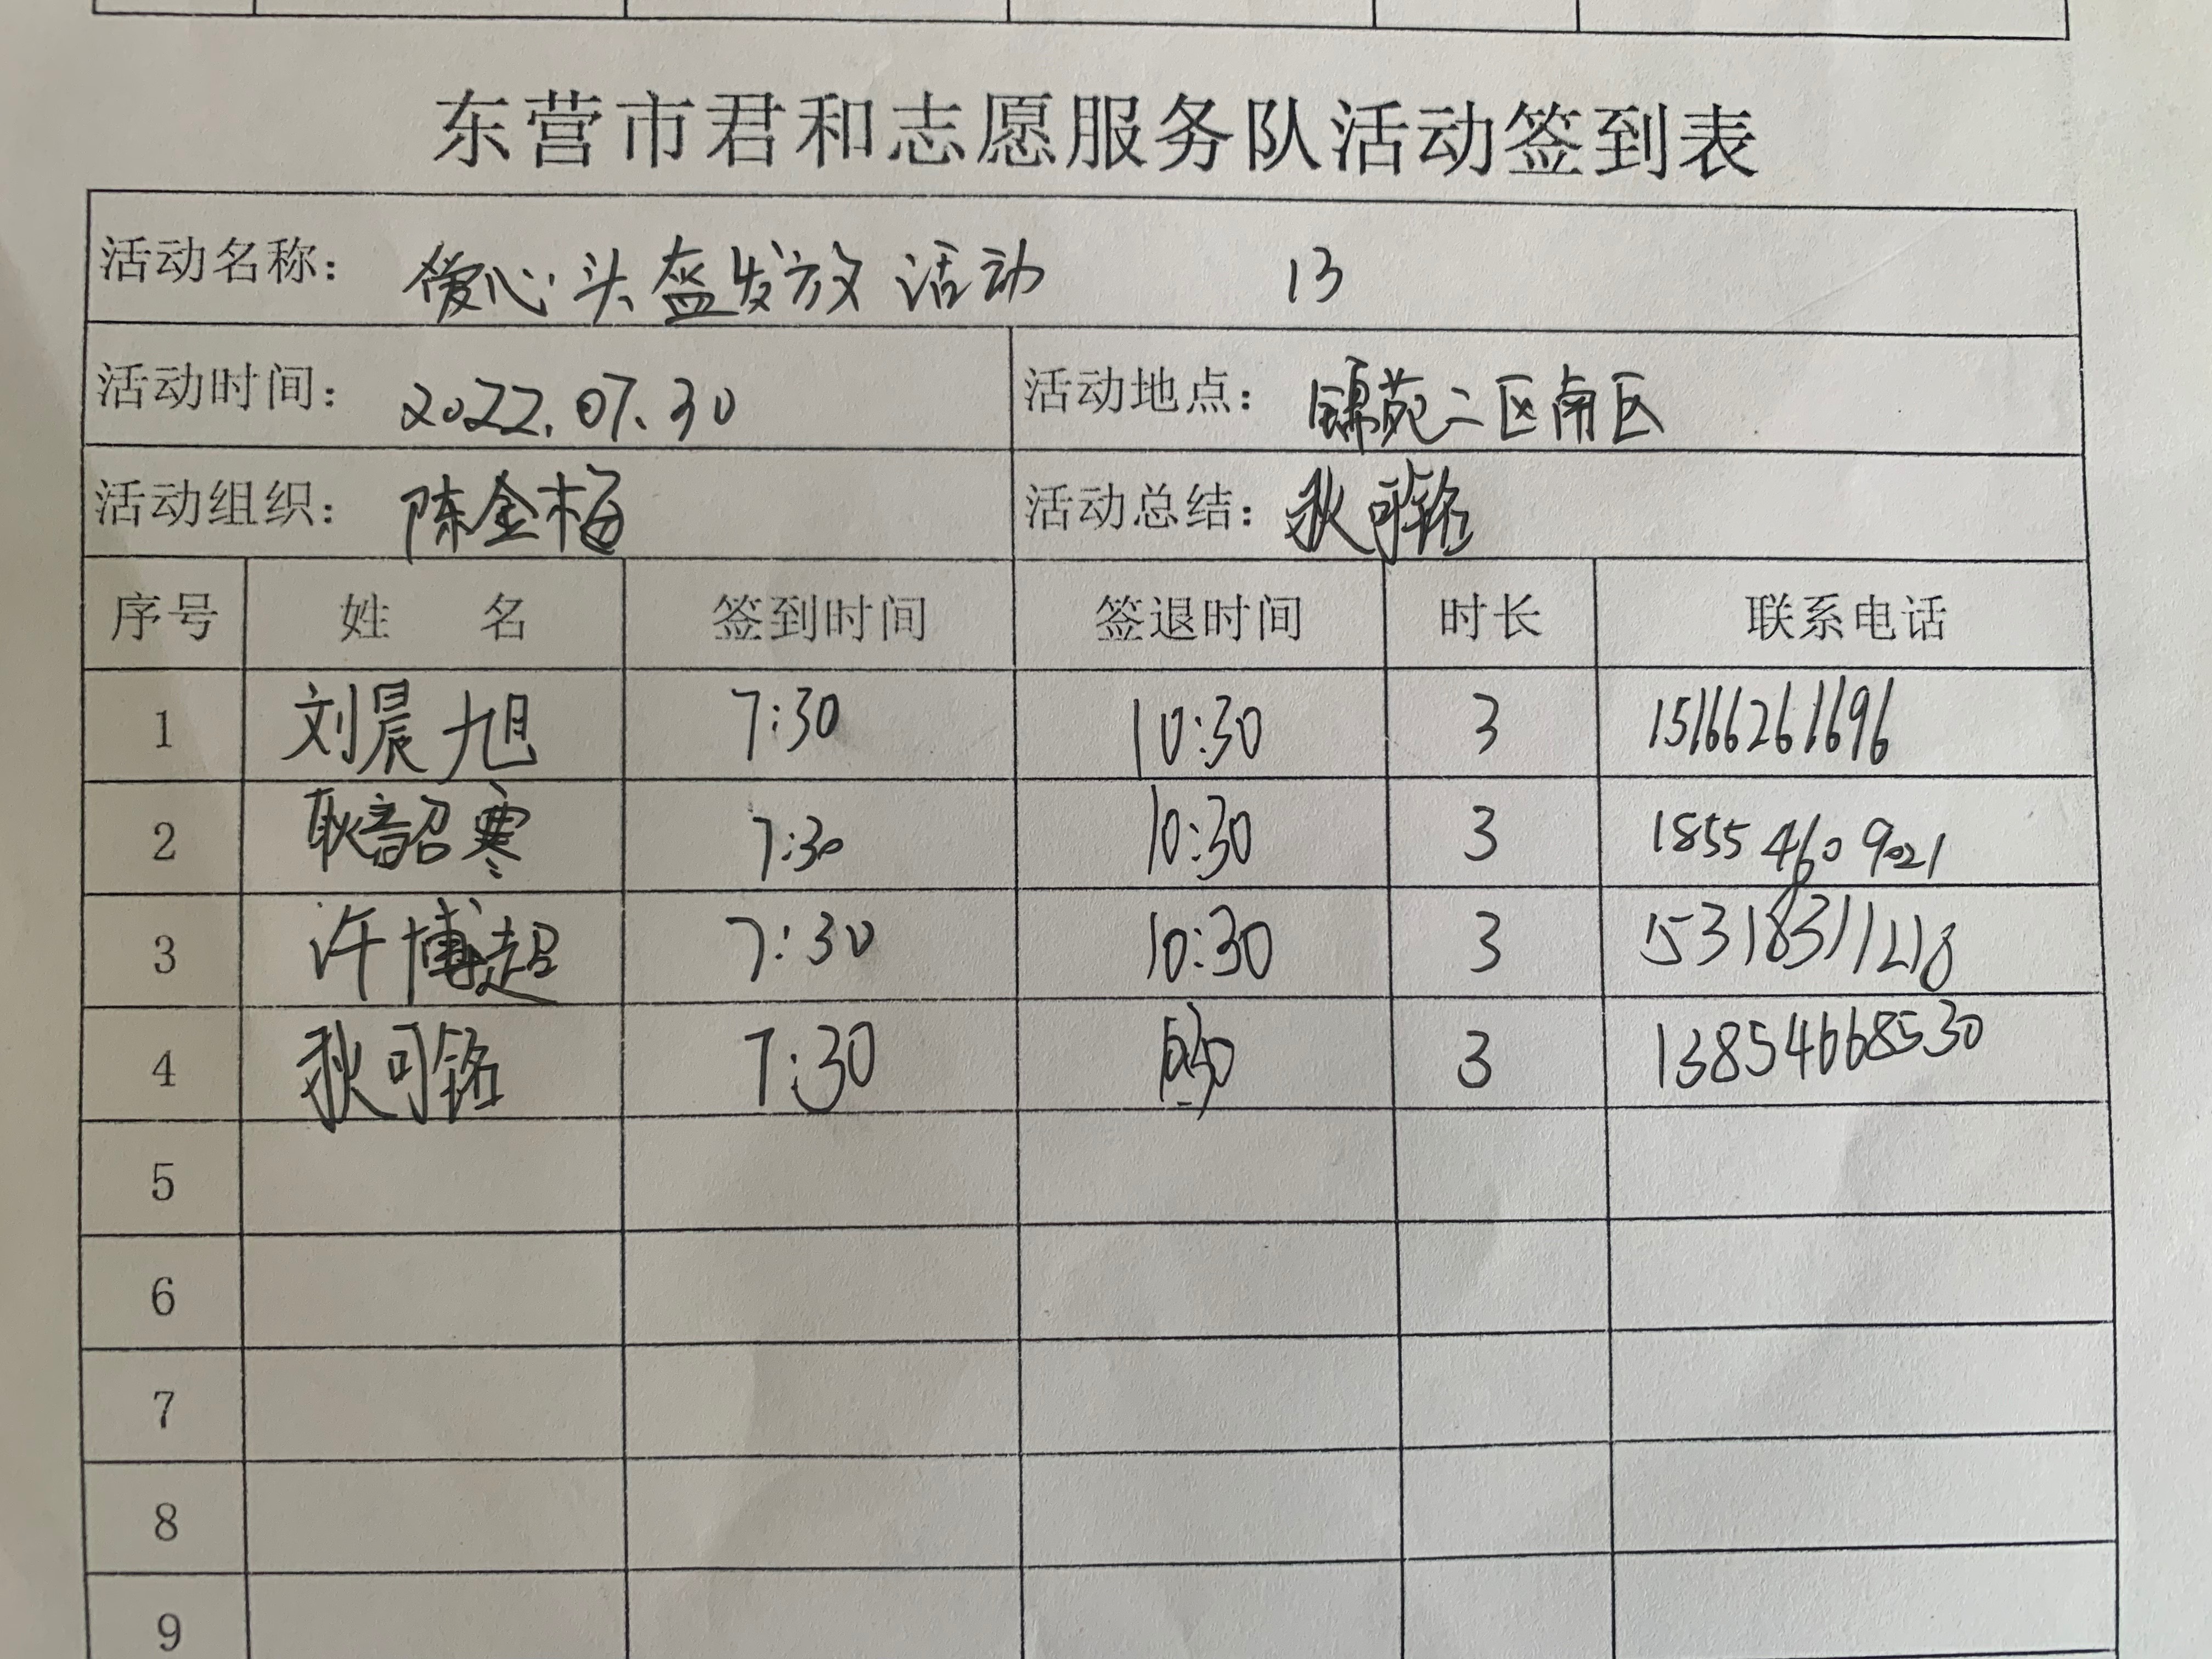 东营市君和志愿服务队活动签到表
活动名称: 爱心头盔发放活动 13
活动时间: 2022.07.30 活动地点: 锦苑二区南区
活动组织: 陈金梅 活动总结: 狄可铭
序号 姓 名 签到时间 签退时间 时长 联系电话
1 刘晨旭 7:30 10:30 3 15166261696
2 耿韶寒 7:30 10:30 3 18554609021
3 许博超 7:30 10:30 3 15318311218
4 狄可铭 7:30 10:30 3 13854668530
5
6
7
8
9